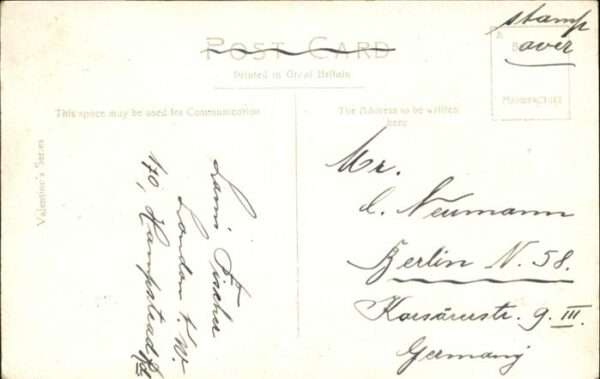 POST CARD
Printed in Great Britain
stamp
over
A
B
MANUFACTURE
This space may be used for Communication
The Address to be written
here
Valentine's Series
Fischer
London N.W.
170, Hampstead Rd
Mr.
Neumann
Berlin N. 58.
9 III.
Germany